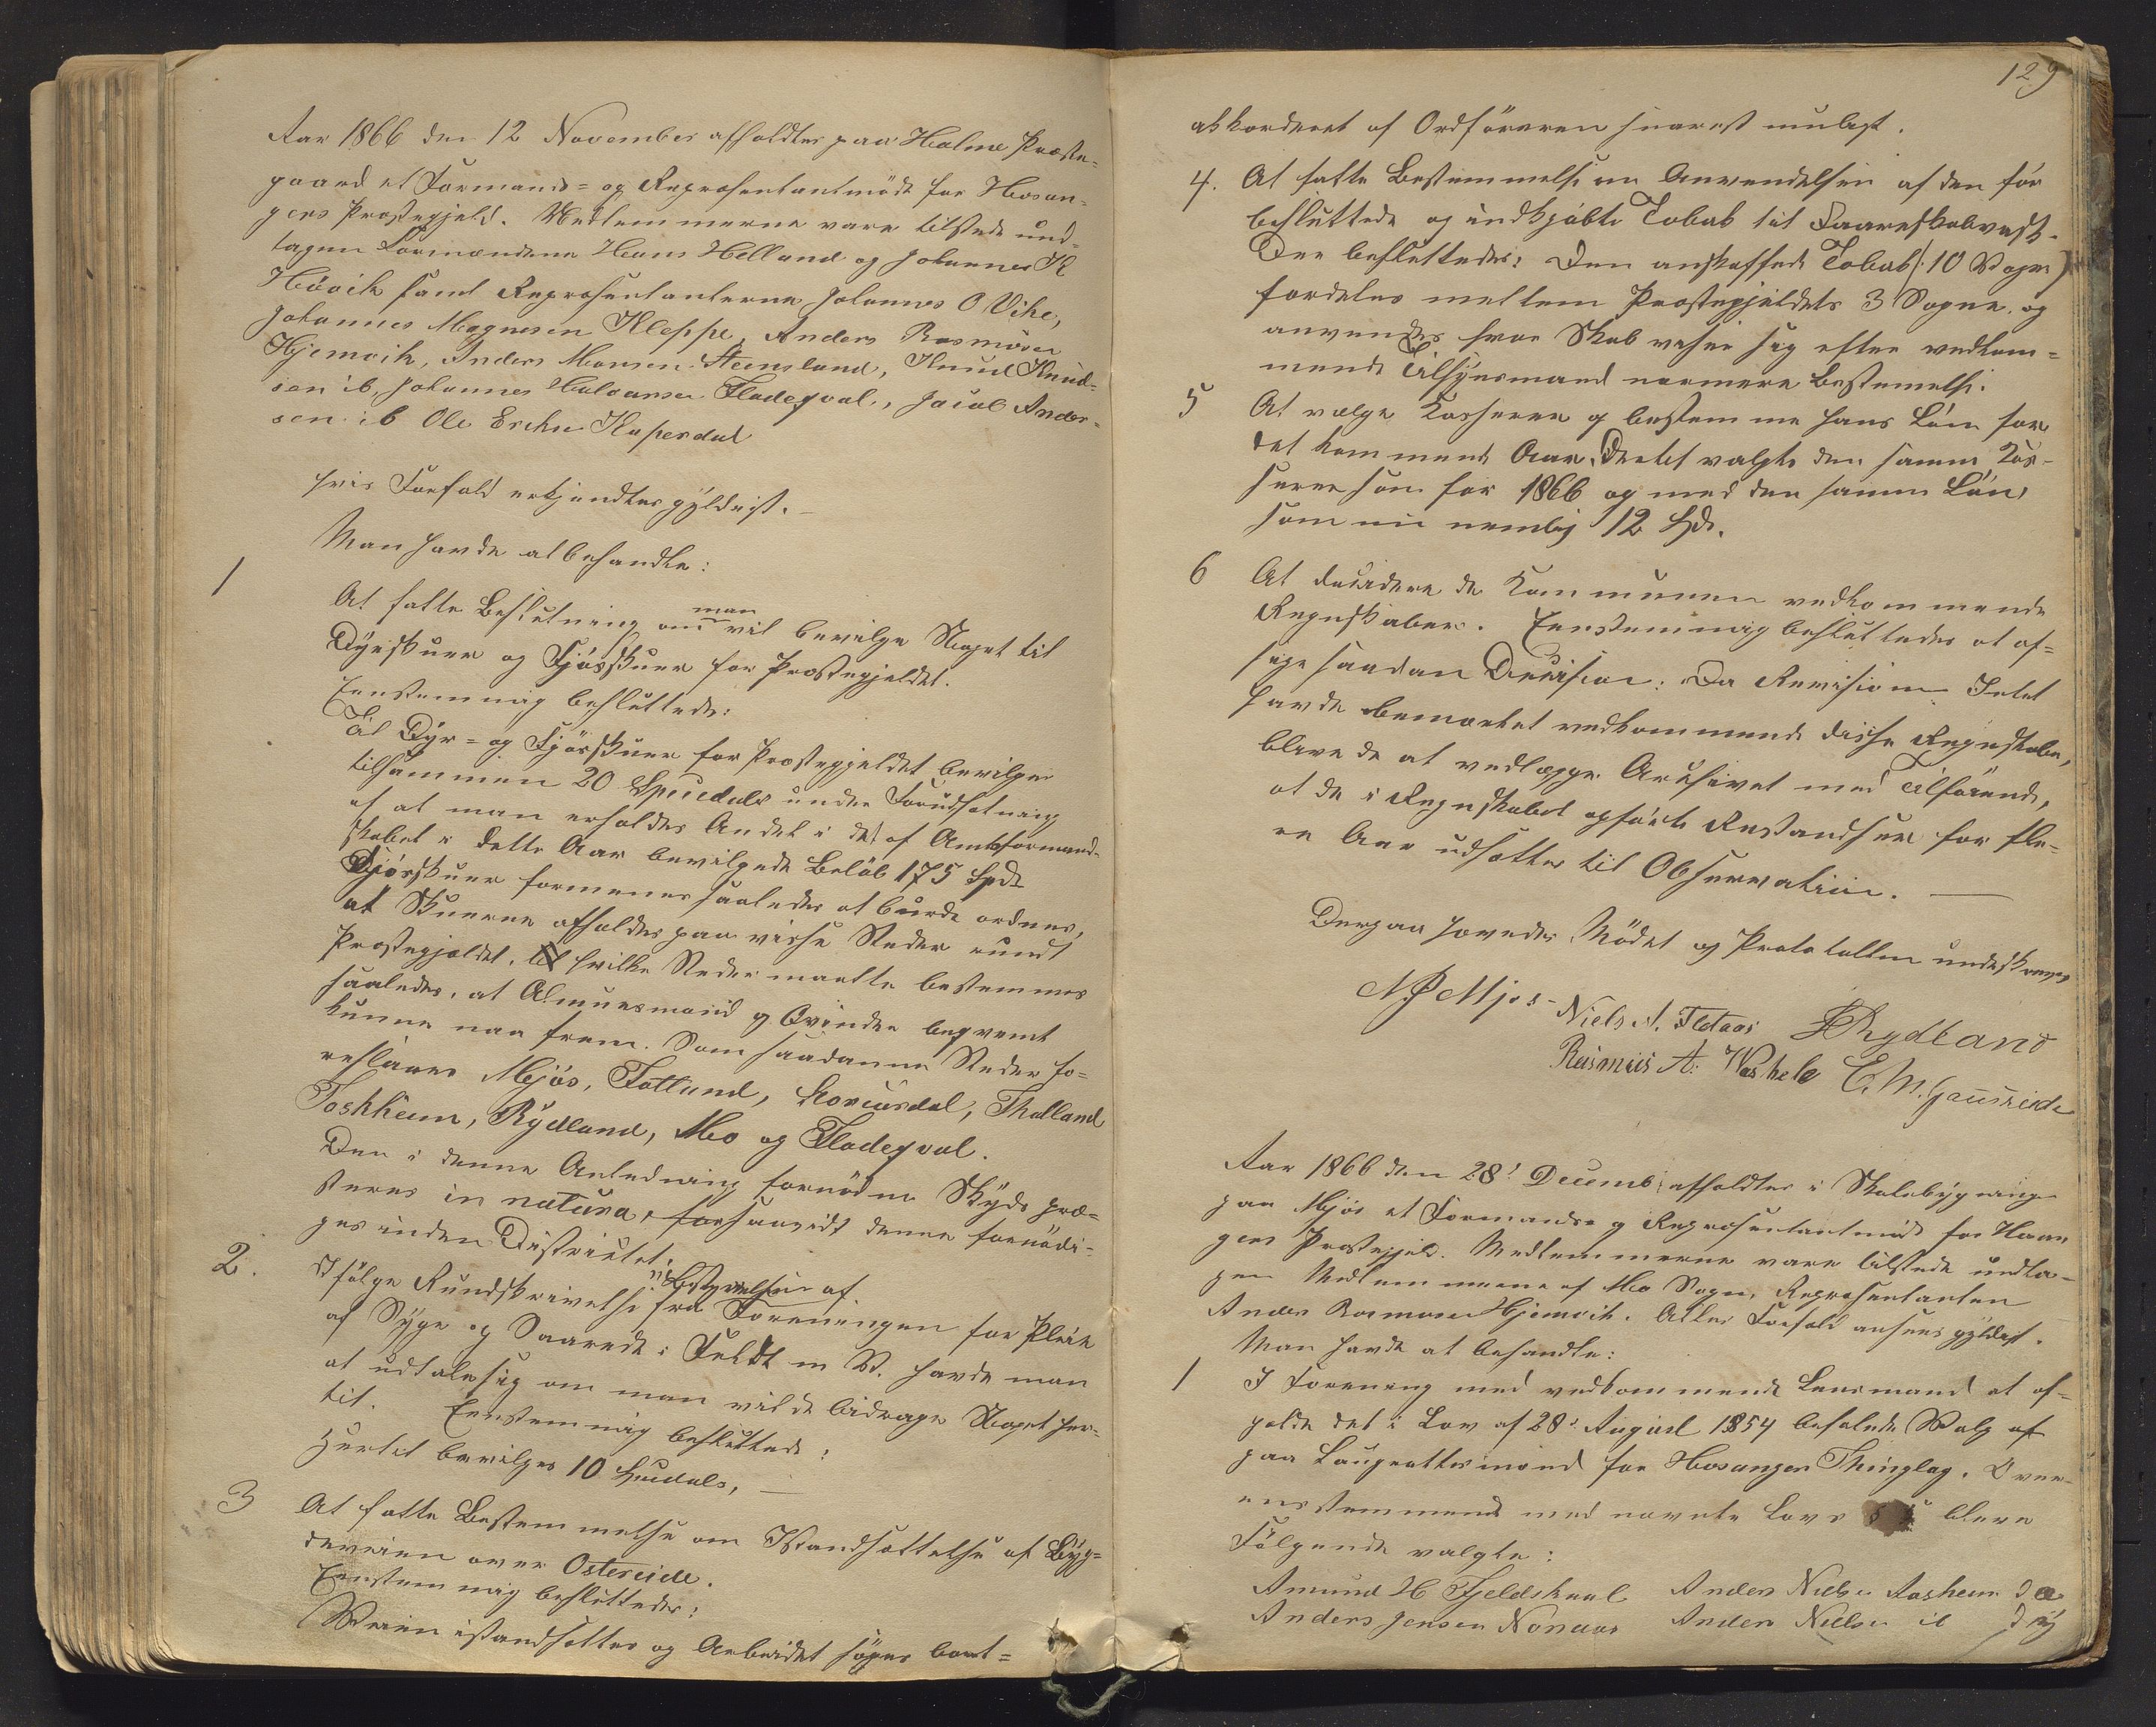 Aar 1866 den 12 November afholdtes paa Halme Præste-
gaard et Formands- og Repræsentantmöde for Hosan-
gers Præstegjeld. Medlemmerne vare tilstede und-
tagen Formændene Hans Helland og Johannes K
Håvik samt Repræsentanterne Johannes O Vike,
Johannes Magnesen Kleppe, Anders Rasmusen
Hjemvik, Anders Monsen Steensland, Knud Knud-
sen ib, Johannes Halvorsen Fladeqval, Jacob Ander-
sen ib Ole Eriksen Kaperdal
hvis Forfald erkjendtes gyldigt.
Man havde at behandle:
1
At fatte Beslutning om man vil bevilge Noget til
Dyrskuer og Fjösskuer for Præstegjeldet.
Eenstemmig besluttedes:
Til Dyr- og Fjösskuer for Præstegjeldet bevilges
tilsammen 20 Speciedaler under Forudsætning
af at man erholder Andel i det af Amtsformand-
skabet i dette Aar bevilgede Belöb 175 Spd
Fjösskuer formenes saaledes at burde ordnes,
at Skuerne afholdes paa visse Steder rundt
Præstegjeldet, hvilke Steder maatte bestemmes
saaledes, at Almuesmænd og Qvinder beqvemt
kunne naa frem. Som saadanne Steder fo-
reslaaes Mjös, Fotland, Tholland
Toskheim, Rydland, Mo og Fladeqval.
Den i denne Anledning fornödne Skyds præ-
steres in natura, forsaavidt denne fornödi-
ges inden Districtet.
2.
Ifölge Rundskrivelse fra Bestyrelsen af Foreningen for Pleie
af Syge og Saarede i Feldt m V. havde man
at udtale sig om man vilde bidrage Noget her-
til. Eenstemmig besluttedes:
Hertil bevilges 10 Specidaler,
3
At fatte Bestemmelse om Istandsættelse af Byg-
deveien over Ostereide.
Eenstemmig besluttedes:
Veien istandsættes og Arbeidet söges bort-
129
akkorderet af Ordföreren snarest muligt.
4. At fatte Bestemmelse om Anvendelsen af den för
besluttede og indkjöbte Tobak til Faareskabvask.
Der besluttedes: Den anskaffede Tobak (: 10 Voger)
fordeles mellem Præstegjeldets 3 Sogne og
anvendes hvor Skab viser sig efter vedkom-
mende Tilsynsmand nærmere Bestemmelse.
5
At vælge Kasserer og bestemme hans Lön for
det kommende Aar. Dertil valgtes den samme Kas-
serer som for 1866 og med den samme Lön
som nu nemlig 12 Spd.
6
At decidere de Kommunen vedkommende
Regnskaber. Eenstemmig besluttedes at af-
sige saadan Decision: Da Revisionen Intet
havde bemærket vedkommende disse Regnskaber,
blive de at vedlægge Arkivet med Tilföiende,
at de i Regnskabet opförte Restandser for fle-
re Aar udsættes til Observation.
Derpaa hævedes Mödet og Protokollen underskreves
N P Mjös Niels A. Fletaas Rydland
Rasmus A. Waskele E. M. Gausereide
Aar 1866 den 28 Decemb afholdtes i Skolebygningen
paa Mjös et Formands- og Repræsentantmöde for Hosan
gers Præstegjeld. Medlemmerne vare tilstede undta-
gen Medlemmerne af Mo Sogn, Repræsentanten
Anders Rasmusen Hjemvik. Alles Forfald ansees gyldigt.
Man havde at behandle:
1
I Forening med vedkommende Lensmand at af-
holde det i Lov af 28 August 1854 befalede Valg af
paa Laugrettesmænd for Hosanger Thinglag. Over-
eensstemmende med nævnte Lovs § bleve
Fölgende valgte:
Amund H Fjeldskaal Anders Nielsen Aasheim
Anders Jensen Nonaas Anders Nielsen ib